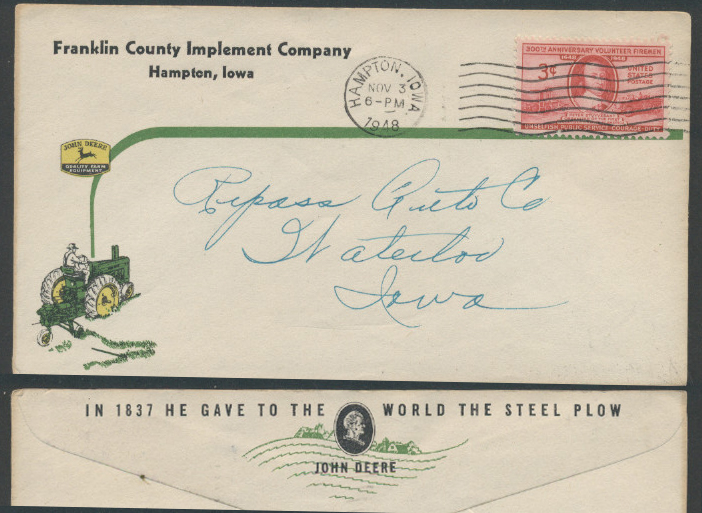 Franklin County Implement Company
Hampton, Iowa
HAMPTON, IOWA.
NOV 3
6-PM
1948
300TH ANNIVERSARY VOLUNTEER FIREMEN
1648 1948
3¢
UNITED
STATES
POSTAGE
UNSELFISH PUBLIC SERVICE·COURAGE·DUTY
JOHN DEERE
QUALITY FARM
EQUIPMENT
Rypass Auto Co
Waterloo
Iowa
IN 1837 HE GAVE TO THE WORLD THE STEEL PLOW
JOHN DEERE